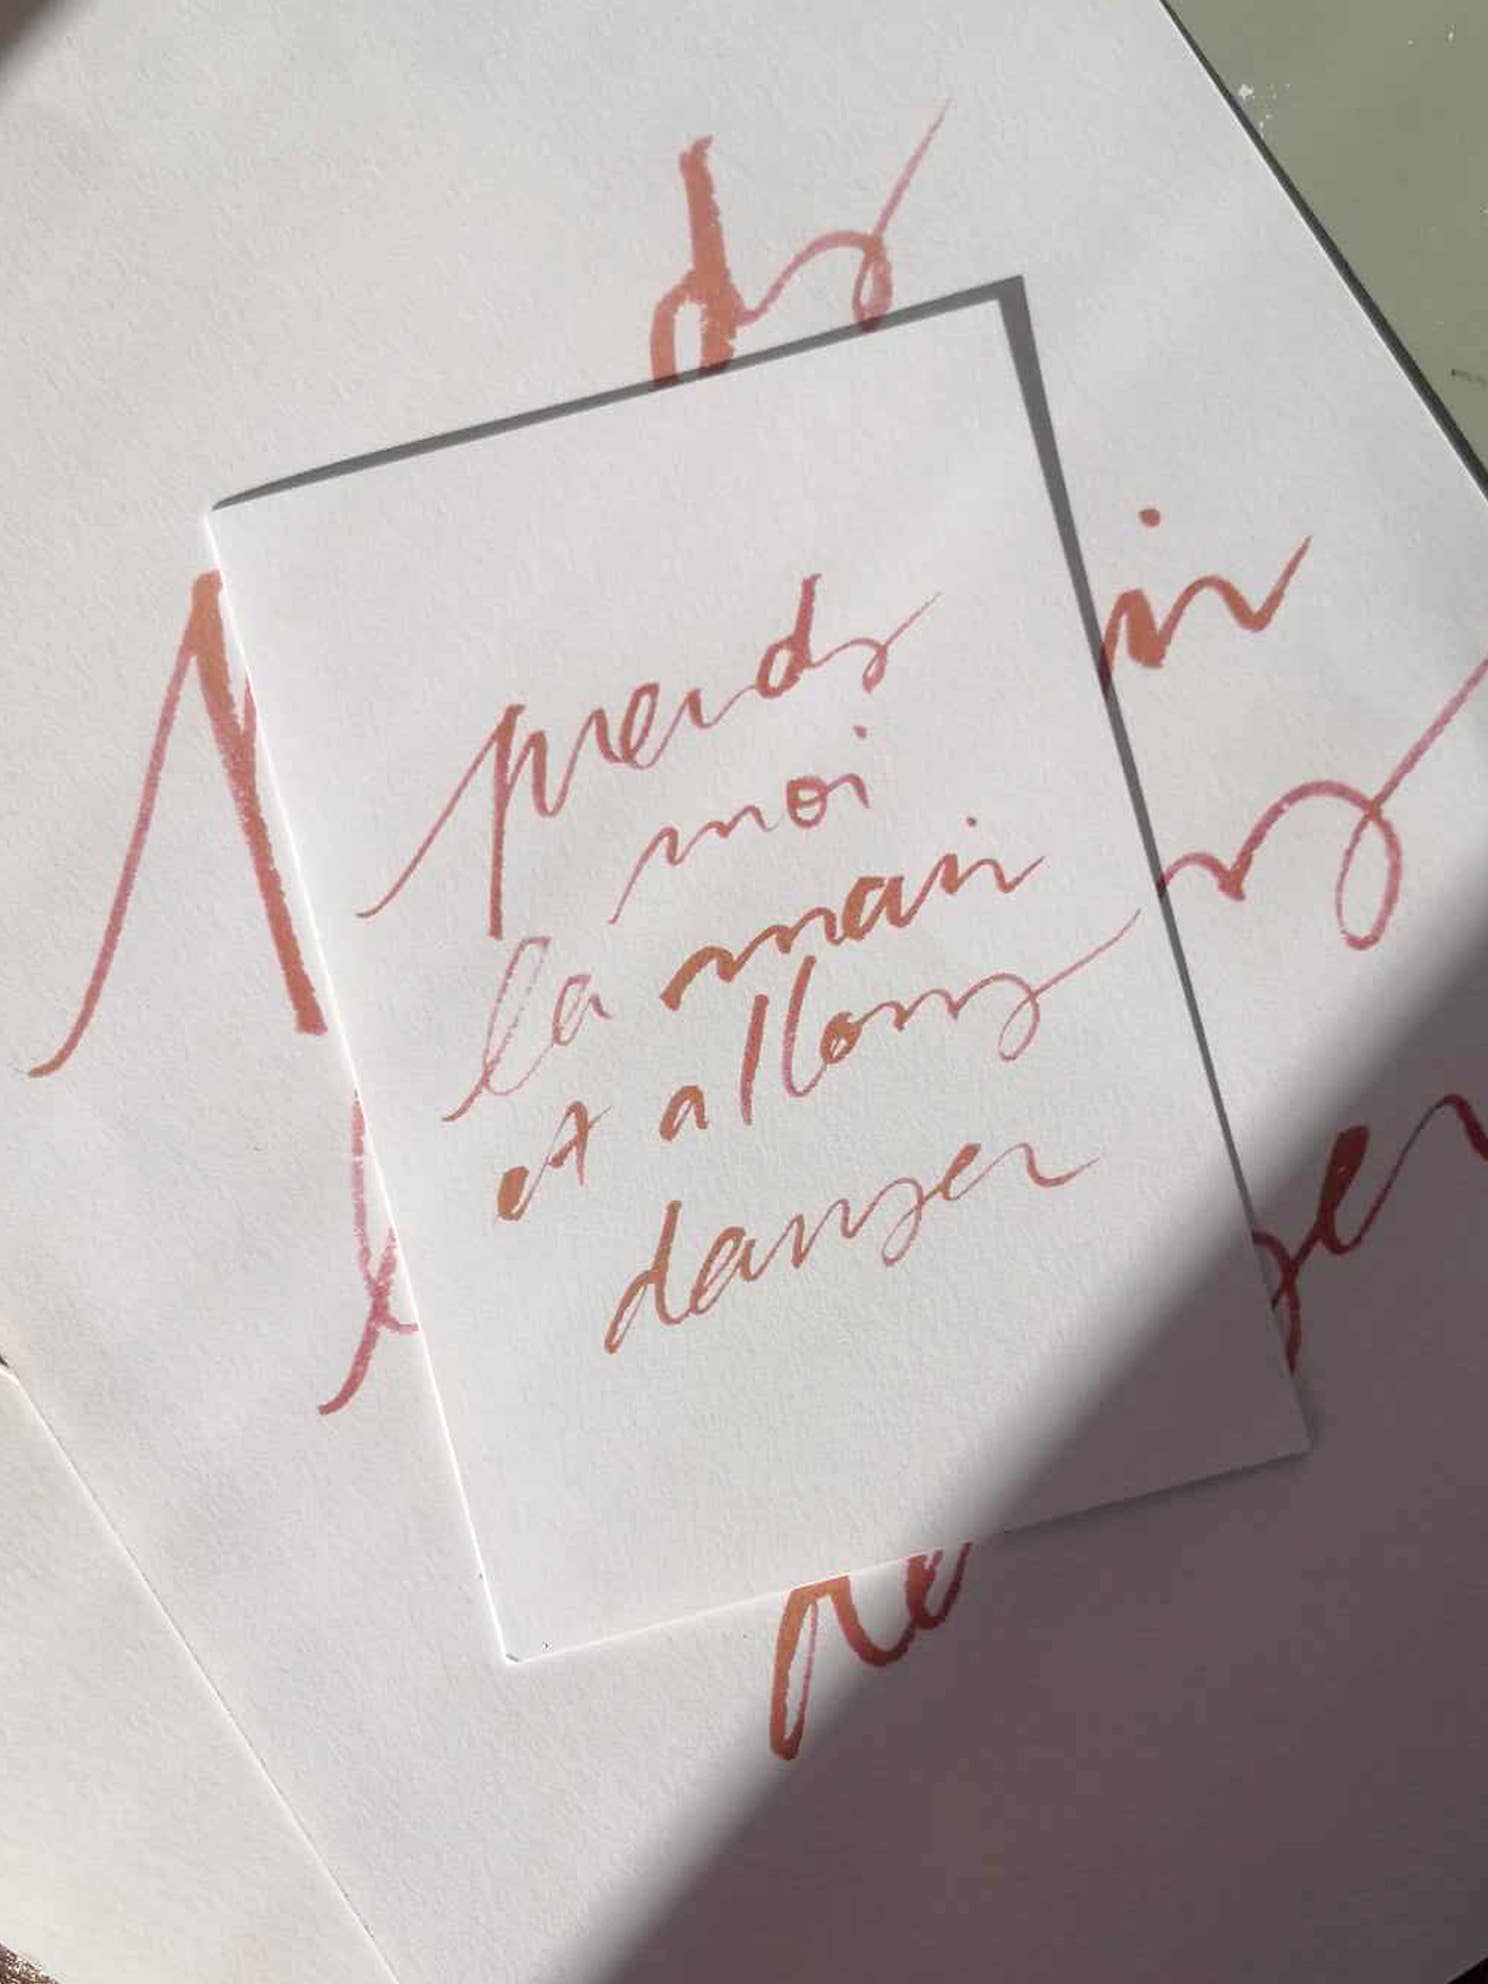 prends
moi
la main
et allons
danser